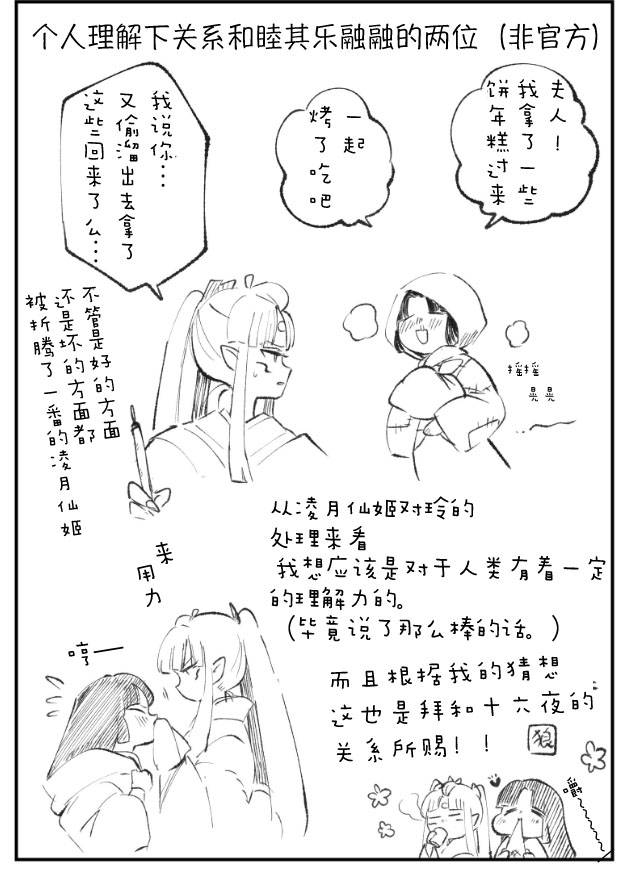 个人理解下关系和睦其乐融融的两位（非官方）
夫人！
我拿了一些
饼年糕过来
一起
烤了吃吧
我说你…
又偷溜出去拿了
这些回来了么…
摇摇
晃晃
不管是好的方面
还是坏的方面都
被折腾了一番的凌月仙姬
从凌月仙姬对玲的
处理来看
我想应该是对于人类有着一定
的理解力的。
（毕竟说了那么棒的话。）
来
用力
哼——
而且根据我的猜想
这也是拜和十六夜的
关系所赐！！
狼
嚼～